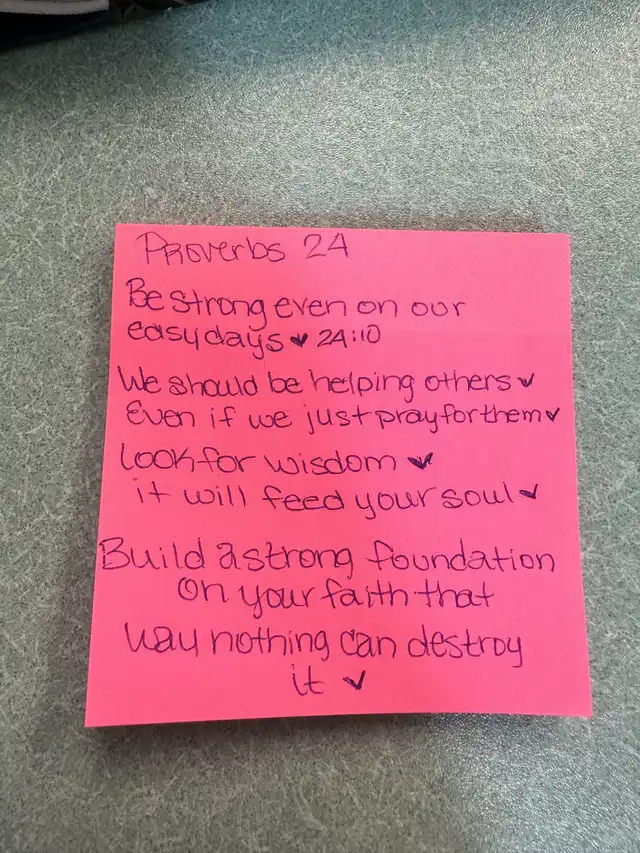 Proverbs 24
Be strong even on our
easy days ♥ 24:10
We should be helping others ♥
Even if we just pray for them ♥
Look for wisdom ♥
it will feed your soul ♥
Build a strong foundation
On your faith that
way nothing can destroy
it ♥